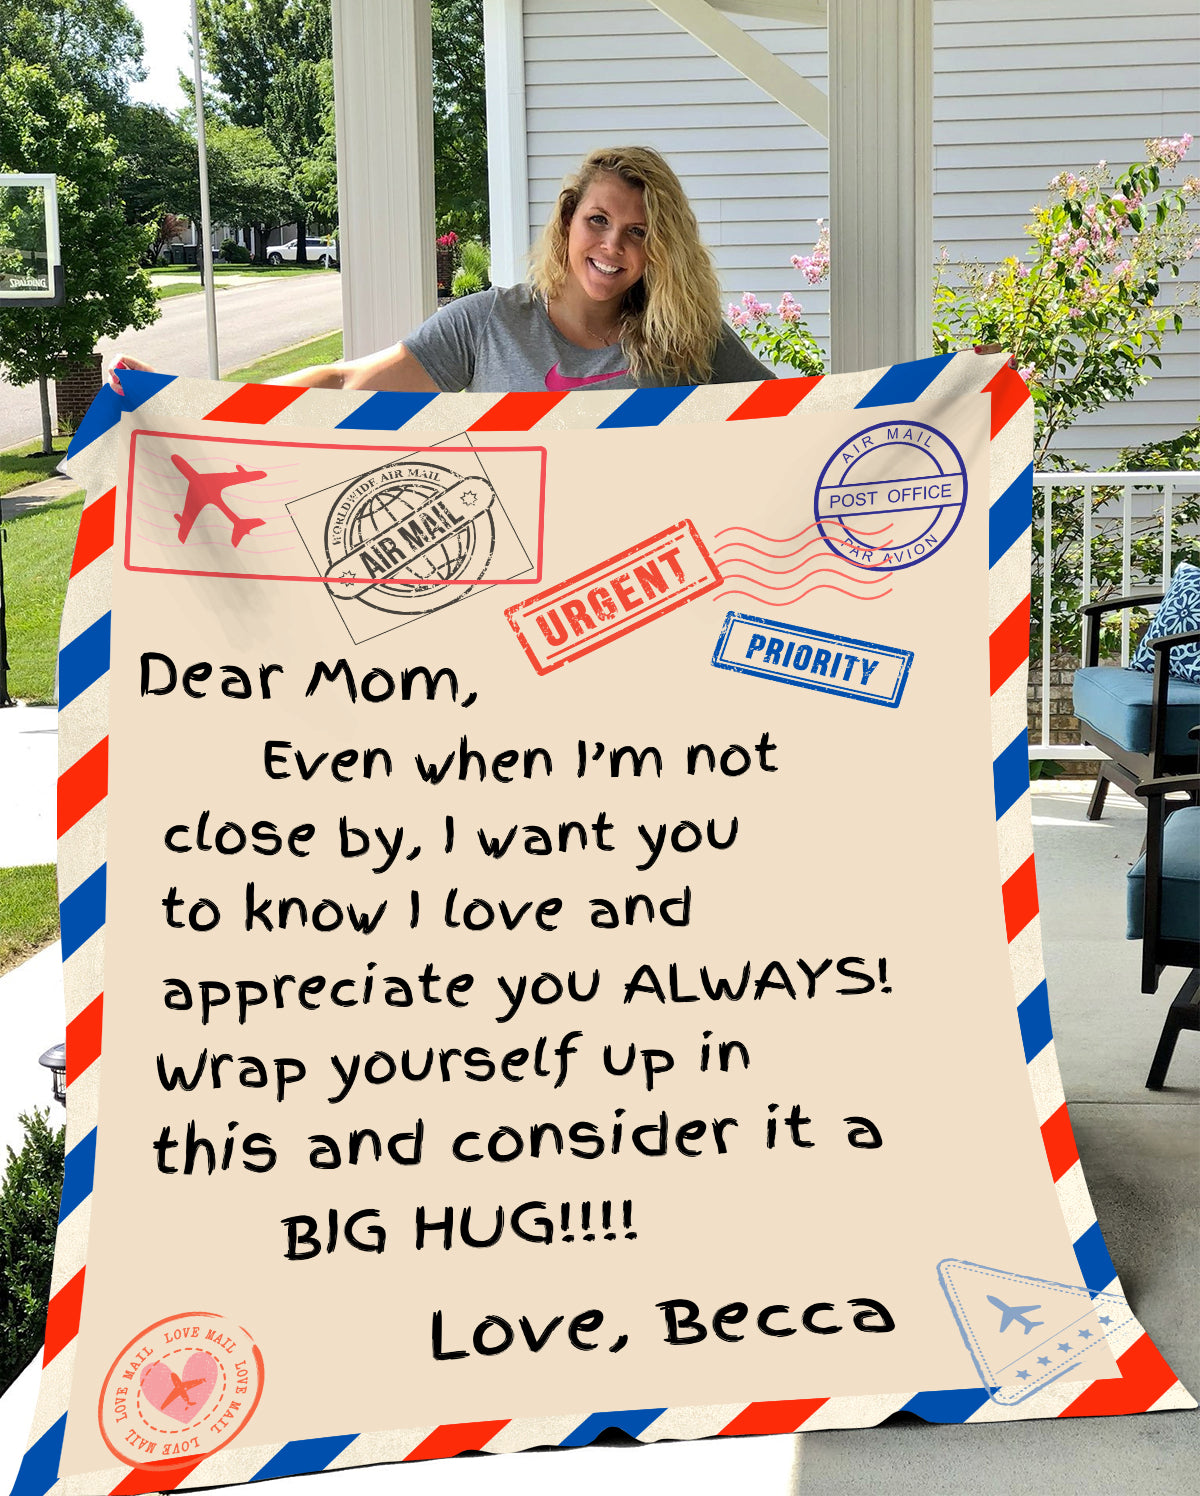 SPALDING
WORLDWIDE AIR MAIL
AIR MAIL
AIR MAIL
POST OFFICE
PAR AVION
URGENT
PRIORITY
Dear Mom,
Even when I'm not
close by, I want you
to know I love and
appreciate you ALWAYS!
Wrap yourself up in
this and consider it a
BIG HUG!!!!
Love, Becca
LOVE MAIL LOVE MAIL LOVE MAIL LOVE MAIL